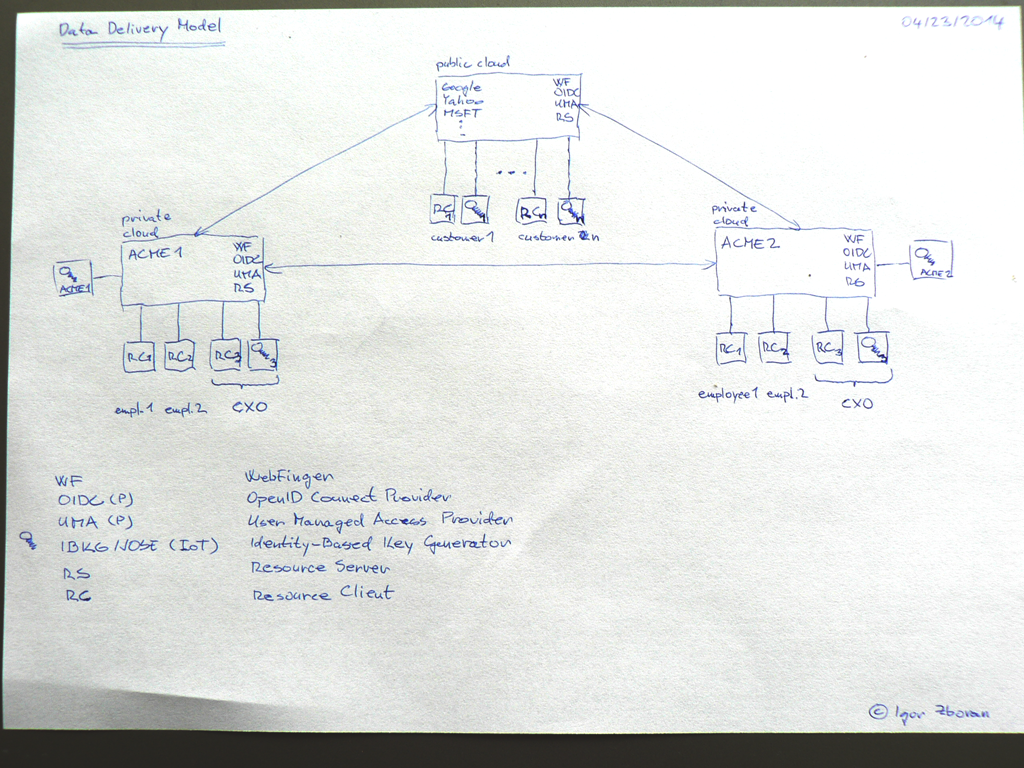 Data Delivery Model
04/23/2014
public cloud
Google
Yahoo
MSFT
WF
OIDC
UMA
RS
RC1
...
RCn
customer 1
customer n
private
cloud
ACME 1
WF
OIDC
UMA
RS
ACME1
RC1
RC2
RC3
3
empl.1
empl.2
CXO
private
cloud
ACME 2
WF
OIDC
UMA
RS
ACME2
RC1
RC2
RC3
3
employee1
empl.2
CXO
WF WebFinger
OIDC (P) OpenID Connect Provider
UMA (P) User Managed Access Provider
IBKG/JOSE (IoT) Identity-Based Key Generator
RS Resource Server
RC Resource Client
© Igor Zboran